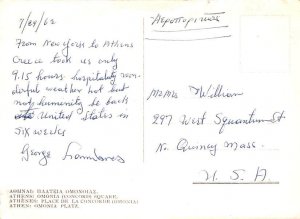 7/24/62
From New York to Athens
Greece took us only
9.15 hours hospitality won-
derful weather hot but
not humanity be back
United States in
six weeks
George
Αεροπορικώς
Mr Mrs William
297 West Squantum St
No. Quincy Mass.
U. S. A.
ΑΘΗΝΑΙ. ΠΛΑΤΕΙΑ ΟΜΟΝΟΙΑΣ.
ATHENS: OMONIA (CONCORDE) SQUARE.
ATHENES: PLACE DE LA CONCORDE (OMONIA)
ATHEN: OMONIA PLATZ.